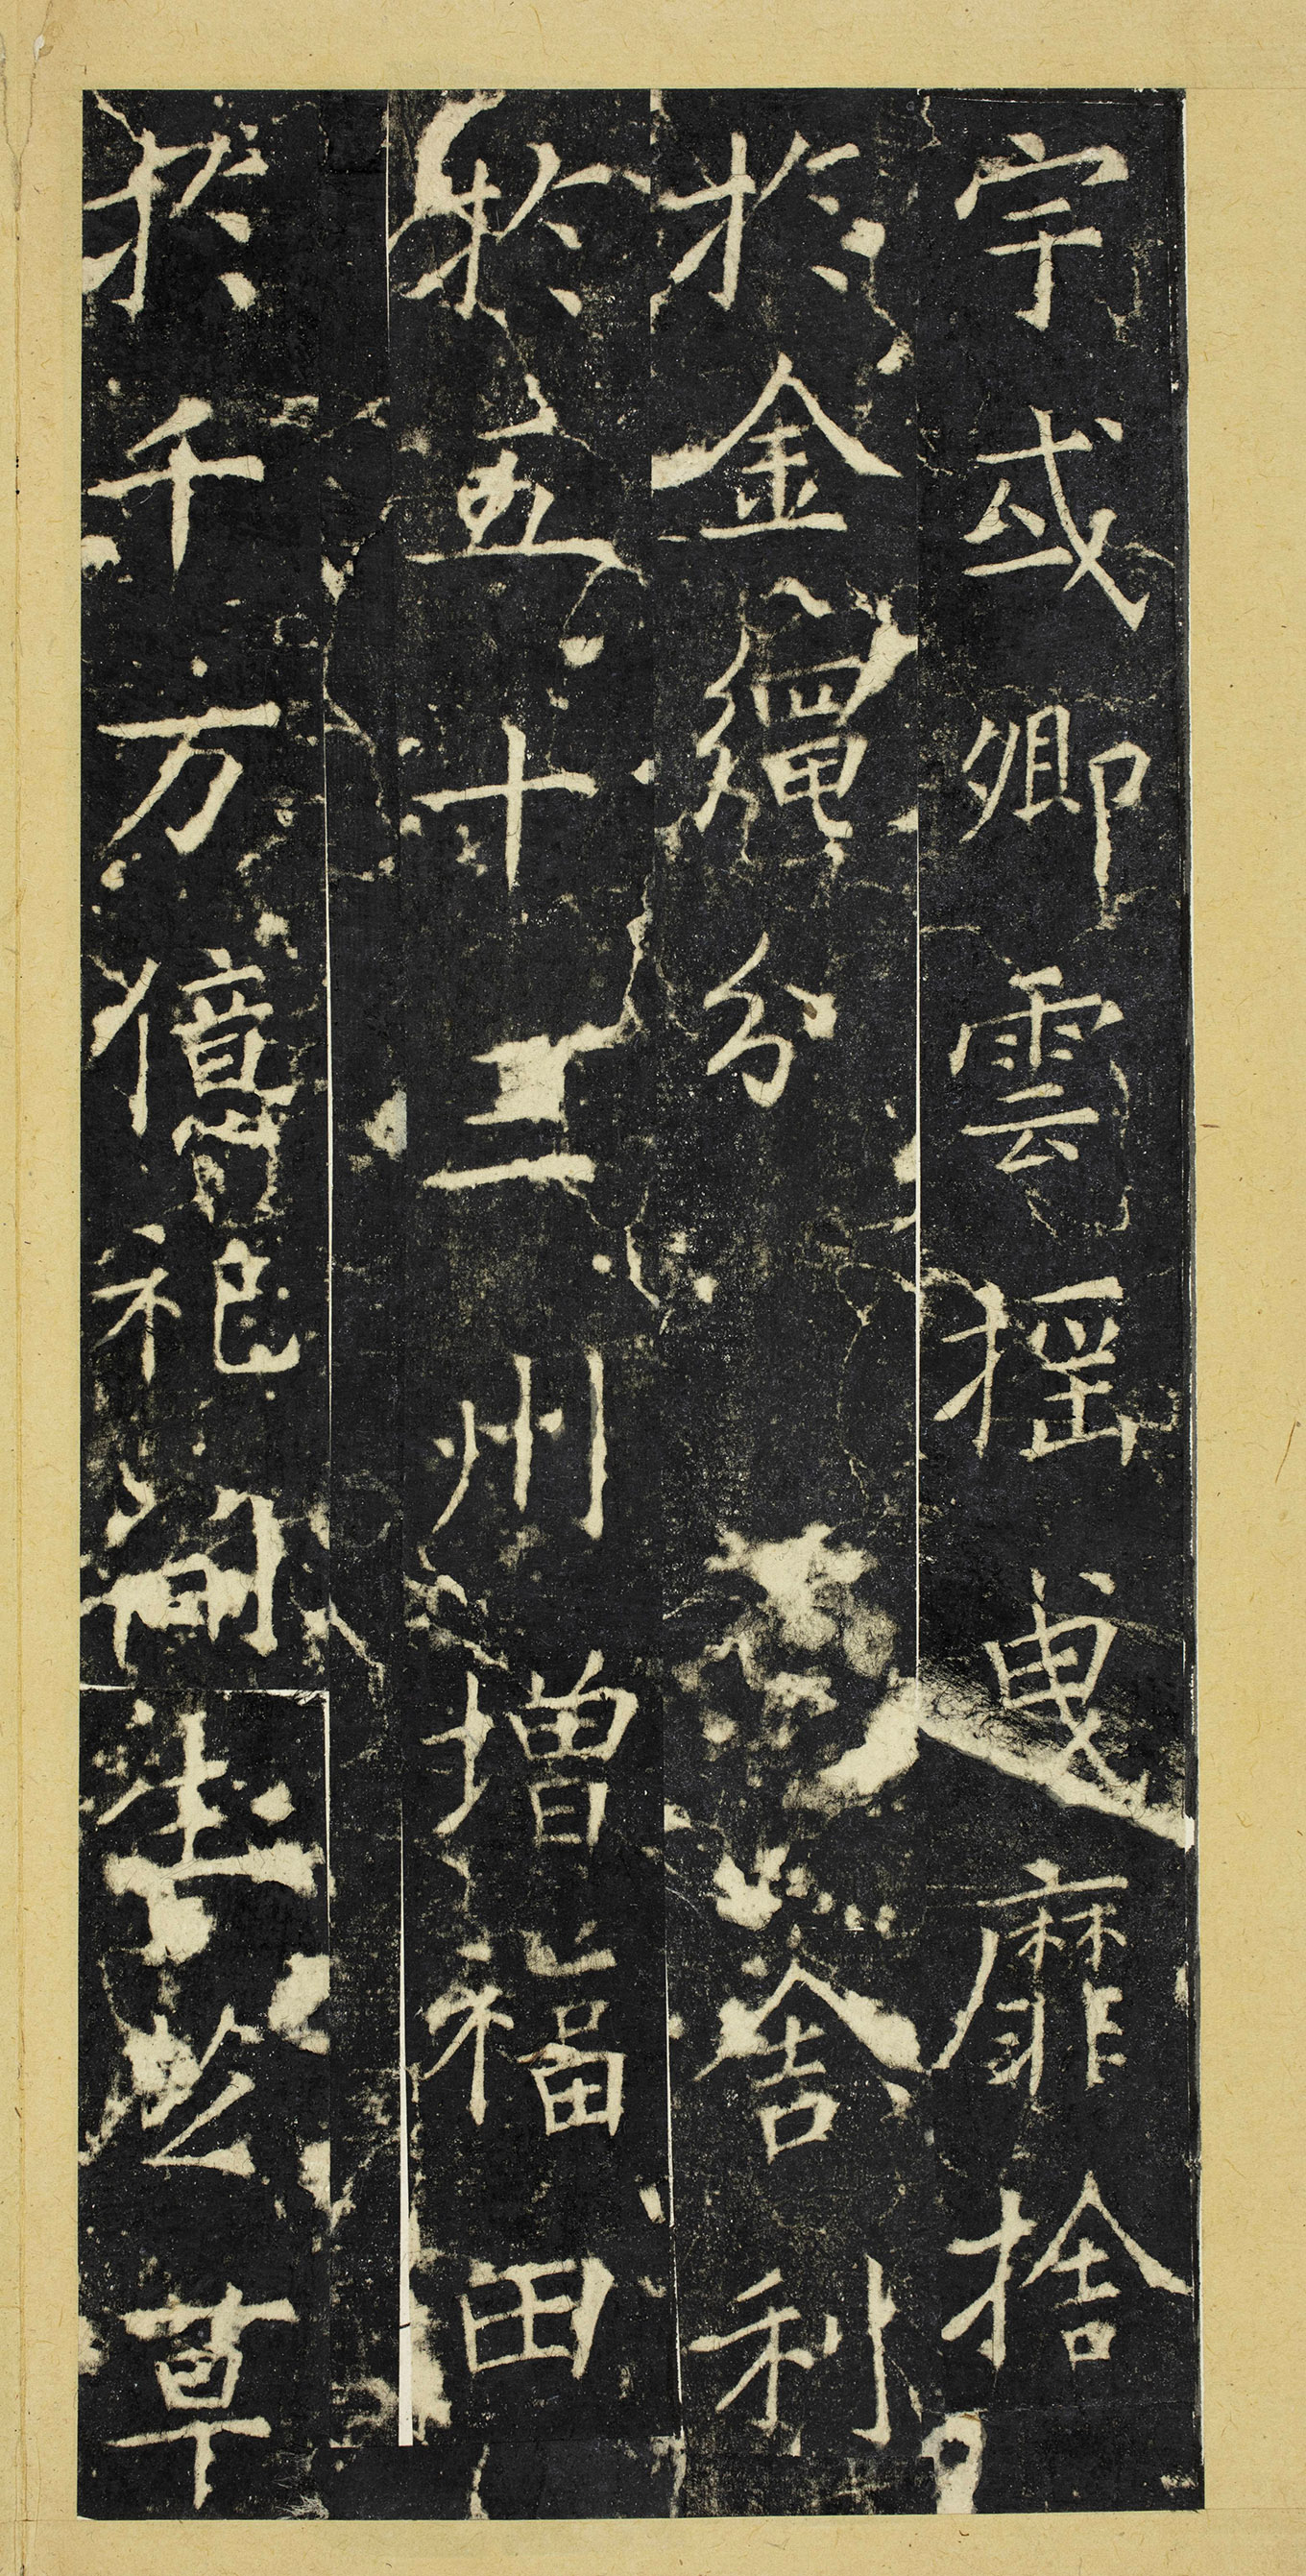 宇或卿雲搖曳靡捨
於金繩分舍利
於五十三州增福田
於千万億祀生草